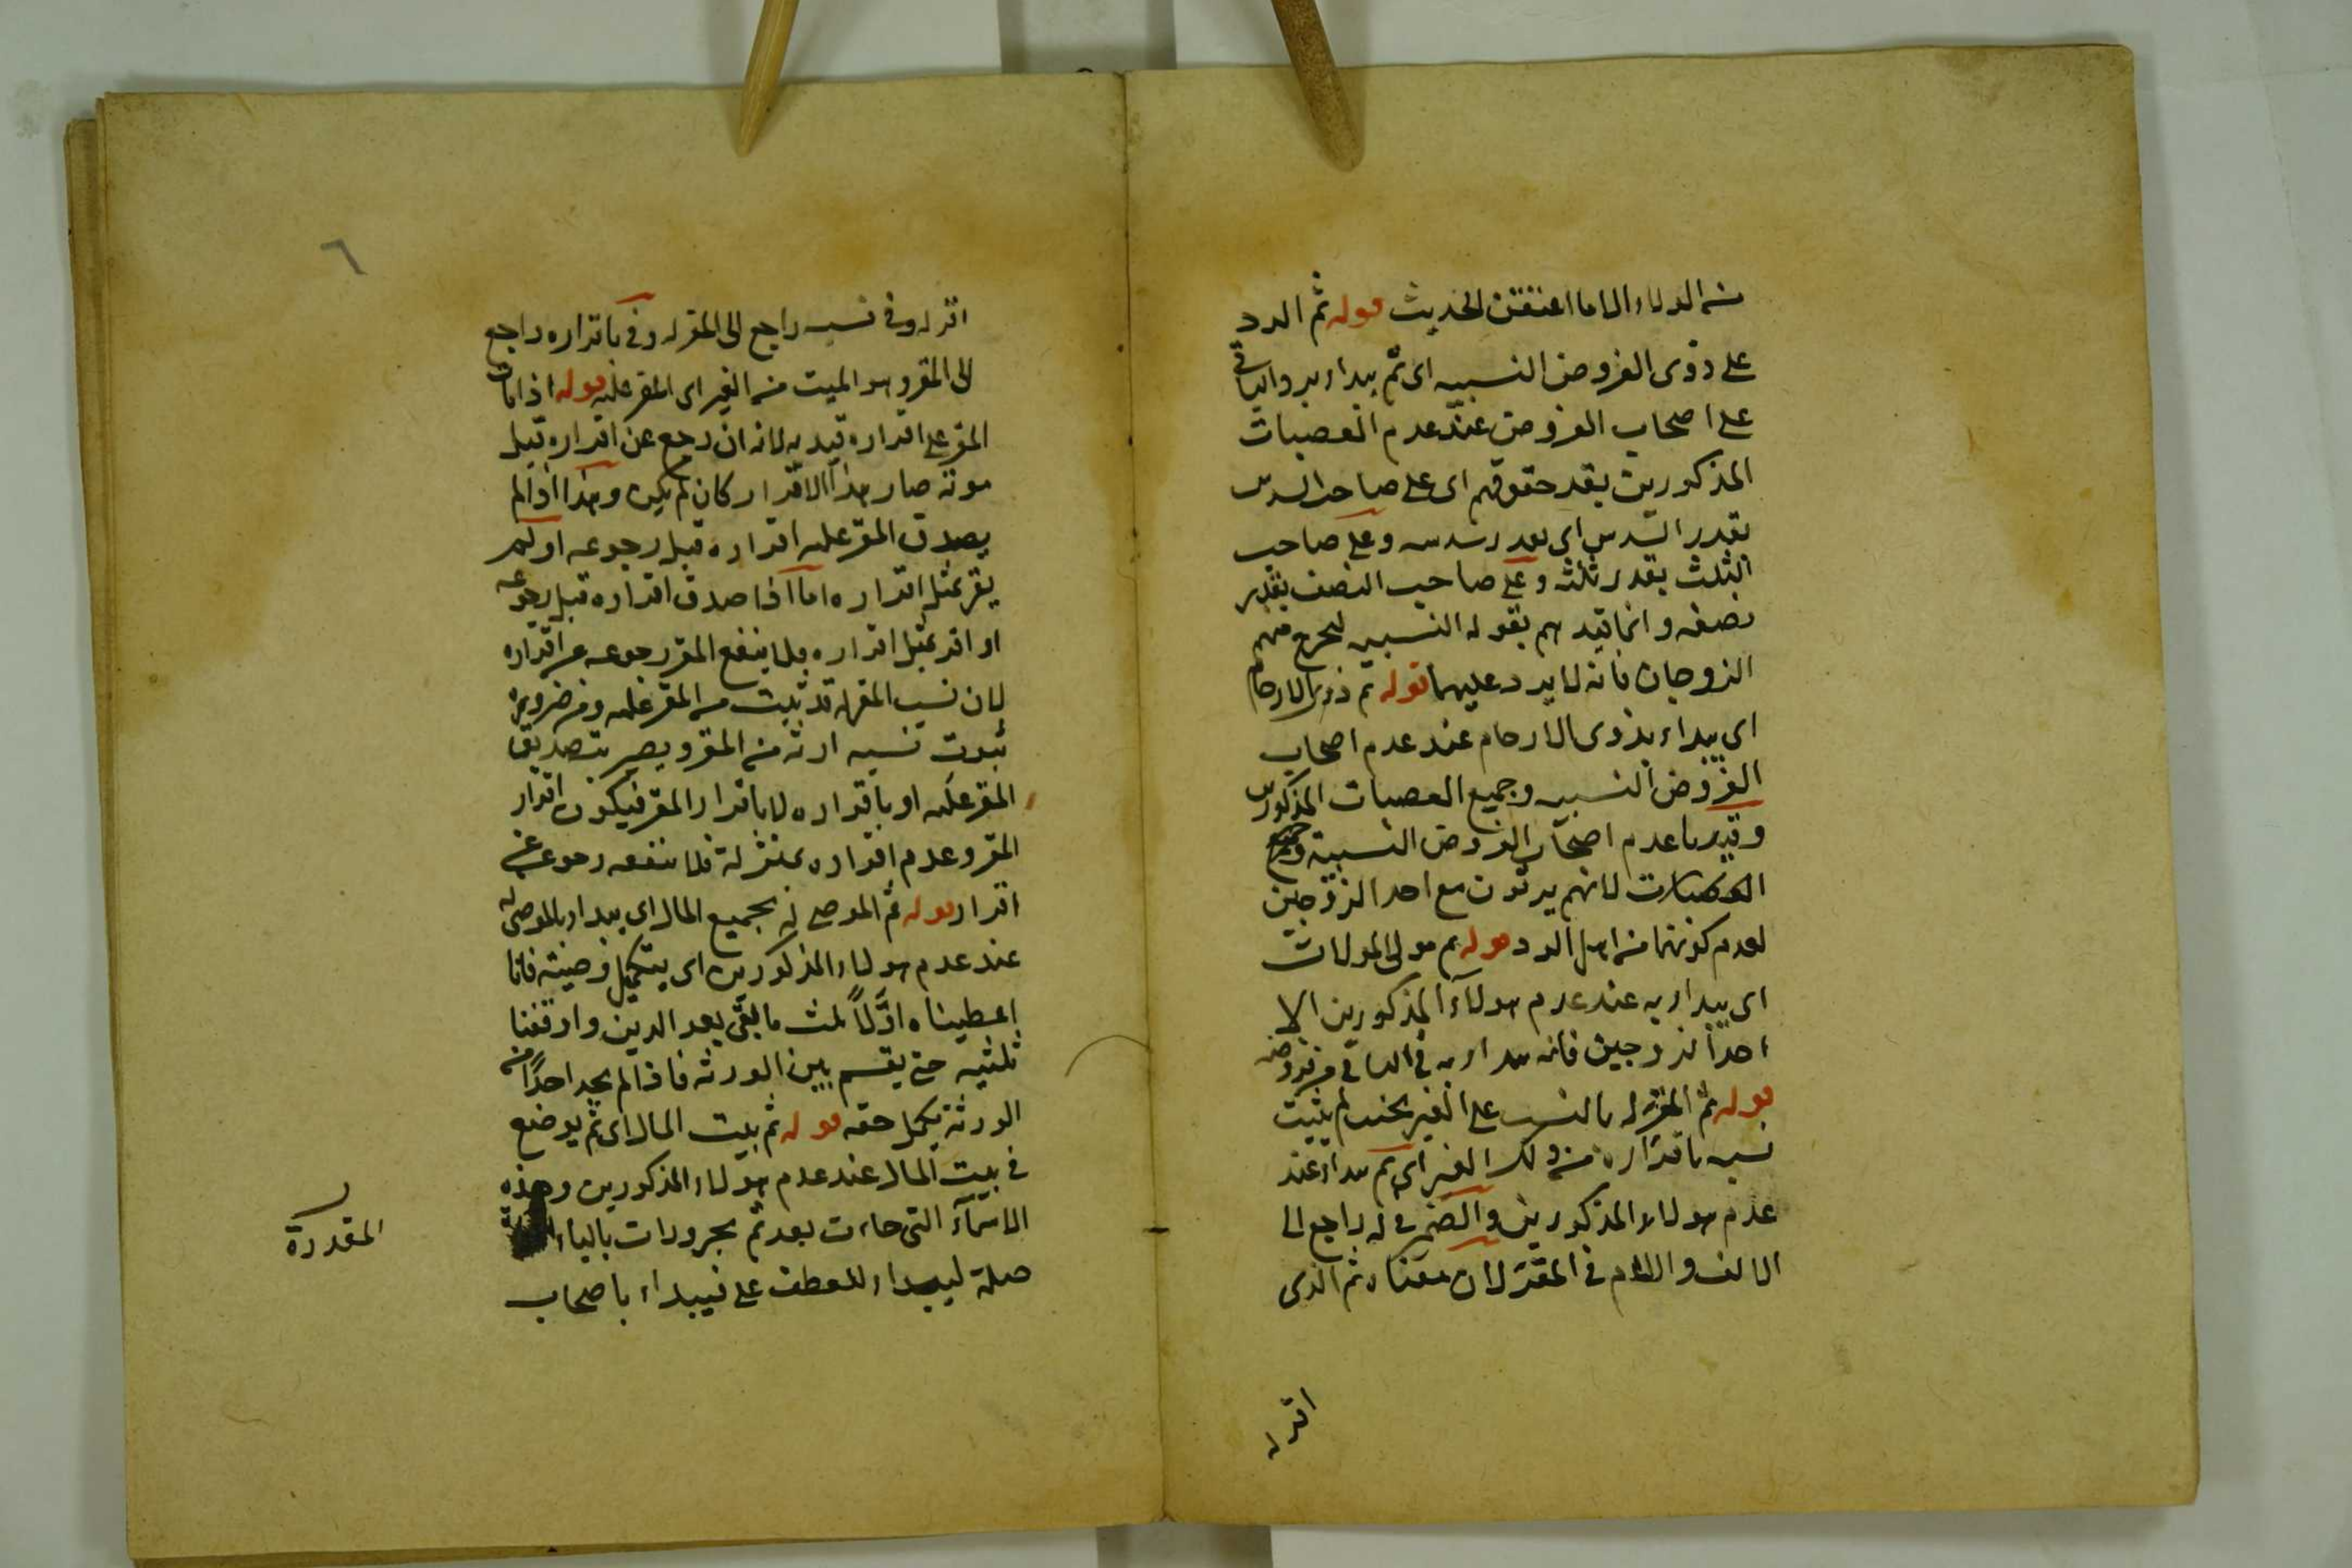 من الولاء الا ما اعتقن الحديث قوله ثم الرد
على ذوى الفروض النسبيه اى ثم يبداء برد الباقى
على اصحاب الفروض عند عدم العصبات
المذكورين بقدر حقوقهم اى على صاحب السدس
بقدر السدس اى بقدر سدسه وعلى صاحب
الثلث بقدر ثلثه وعلى صاحب النصف بقدر
نصفه وانما قيدهم بقوله النسبيه ليخرج منهم
الزوجان فانه لا يرد عليهما قوله ثم ذوى الارحام
اى يبداء بذوى الارحام عند عدم اصحاب
الفروض النسبيه وجميع العصبات المذكورين
وقيدنا عدم اصحاب الفروض النسبية وجميع
العصبات لانهم يرثون مع احد الزوجين
لعدم كونهما من اهل الرد قوله ثم مولى الموالات
اى يبداء به عند عدم هولاء المذكورين الا
احد الزوجين فانه يبداء به فى الباقى من فروضه
قوله ثم المقر له بالنسب على الغير بحيث لم يثبت
نسبه باقراره من ذلك الغير اى ثم يبداء عند
عدم هولاء المذكورين والضمير فى له راجع الى
الالف واللام فى المقر لان معناه ثم الذى
اقر له
٦
اقر له وفى نسبه راجع الى المقر له وفى باقراره راجع
الى المقر وهو الميت من الغير اى المقر عليه قوله اذا مات
المقر على اقراره قيد به لانه ان رجع عن اقراره قبل
موته صار هذا الاقرار كان لم يكن وهذا اذا لم
يصدق المقر عليه اقراره قبل رجوعه او لم
يقر بمثل اقراره اما اذا صدق اقراره قبل رجوعه
او اقر بمثل اقراره فلا ينفع المقر رجوعه عن اقراره
لان نسب المقر له قد ثبت من المقر عليه ومن ضرورة
ثبوت نسبه ارثه من المقر ويصير بتصديق
المقر عليه او باقراره لا باقرار المقر فيكون اقرار
المقر وعدم اقراره بمنزلة فلا ينفعه رجوعه عن
اقرار قوله ثم الموصى له بجميع المال اى يبداء بالموصى له
عند عدم هولاء المذكورين اى بتكميل وصيته فانا
اعطيناه اوّلاً ثلث ما بقى بعد الدين واوقفنا
ثلثيه حتى يقسم بين الورثه فاذا لم يجد احدًا من
الورثة يكمل حقه قوله ثم بيت المال اى ثم يوضع
فى بيت المال عند عدم هولاء المذكورين وهذه
الاسمآء التى جاءت بعد ثم مجرورات بالباء
المقدرة
صلة ليبداء للعطف على فيبداء باصحاب